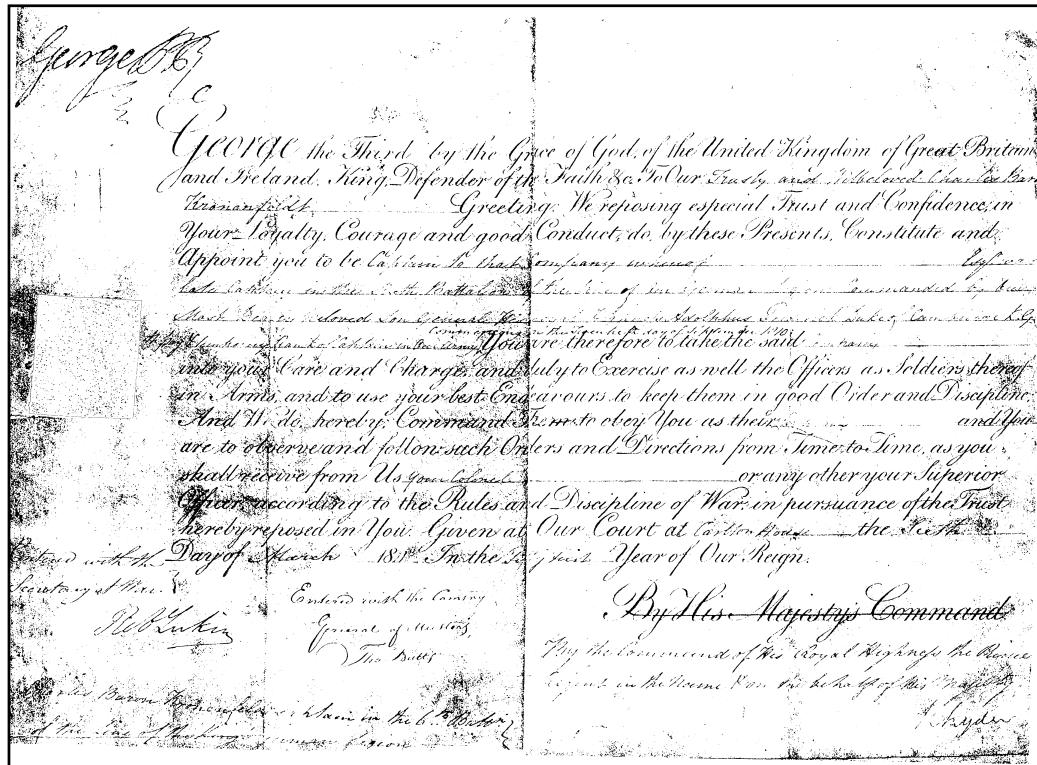 George P R
George the Third by the Grace of God, of the United Kingdom of Great Britain
and Ireland, King, Defender of the Faith &c. To Our Trusty and Welbeloved Charles Baron
Kronenfeldt Greeting: We reposing especial Trust and Confidence, in
Your Loyalty, Courage and good Conduct, do, by these Presents, Constitute and
Appoint you to be Captain to that Company whereof Esqr was
late Captain in the Sixth Battalion of the Line of Commanded by Our
Most Dearly Beloved Son General Adolphus Frederick Duke of Cambridge K.G.
Commencing on the day of 1810
Rank of Captain in Our Army You are therefore to take the said Company
into your Care and Charge, and duly to Exercise as well the Officers as Soldiers thereof
in Arms, and to use your best Endeavours to keep them in good Order and Discipline;
And We do, hereby, Command Them to obey You as their and You
are to observe and follow such Orders and Directions from Time to Time, as you
shall receive from Us your Colonel or any other your Superior
Officer, according to the Rules and Discipline of War, in pursuance of the Trust
hereby reposed in You. Given at Our Court at Carlton House the Sixth
Day of March 181 In the first Year of Our Reign.
Entered with the
Secretary at War
Entered with the Comissy
General of Musters
Tho Butts
By His Majesty's Command
By the Command of His Royal Highness the Prince
Regent in the Name & on the behalf of His Majesty
Ryder
Charles Baron Captain in the 6th Battn
of the Line of the King's German Legion